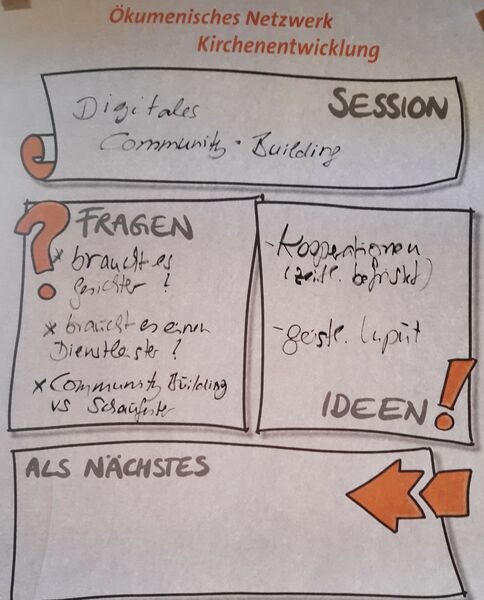 Ökumenisches Netzwerk
Kirchenentwicklung
SESSION
Digitales
Community-Building
FRAGEN
x braucht es
Gesichter?
x braucht es einen
Dienstleister?
x Community Building
vs Schaufenster
- Kooperationen
(zeitl. befristet)
- geistl. Input
IDEEN
ALS NÄCHSTES